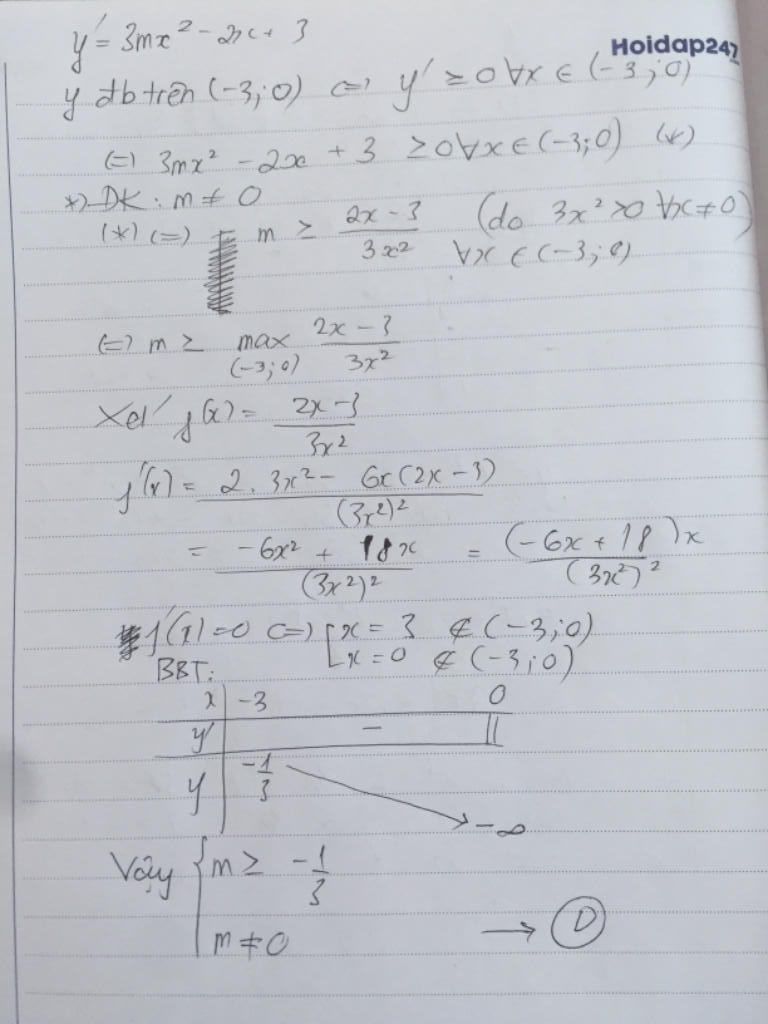 y' = 3mx² - 2x + 3
Hoidap247
y đb trên (-3;0) <=> y' ≥ 0 ∀x ∈ (-3;0)
(=) 3mx² - 2x + 3 ≥ 0 ∀x ∈ (-3;0) (*)
*) ĐK: m ≠ 0
(*) (=) m ≥ (2x - 3)/(3x²) (do 3x² > 0 ∀x ≠ 0)
∀x ∈ (-3;0)
(=) m ≥ max (-3;0) (2x - 3)/(3x²)
Xét f(x) = (2x - 3)/(3x²)
f'(x) = (2.3x² - 6x(2x - 3))/(3x²)²
= (-6x² + 18x)/(3x²)² = (-6x + 18)x/(3x²)²
f'(x) = 0 (=) [x = 3 ∉ (-3;0)
[x = 0 ∉ (-3;0)
BBT:
x -3 0
y' - ||
y -1/3 -∞
Vậy { m ≥ -1/3
m ≠ 0 → D